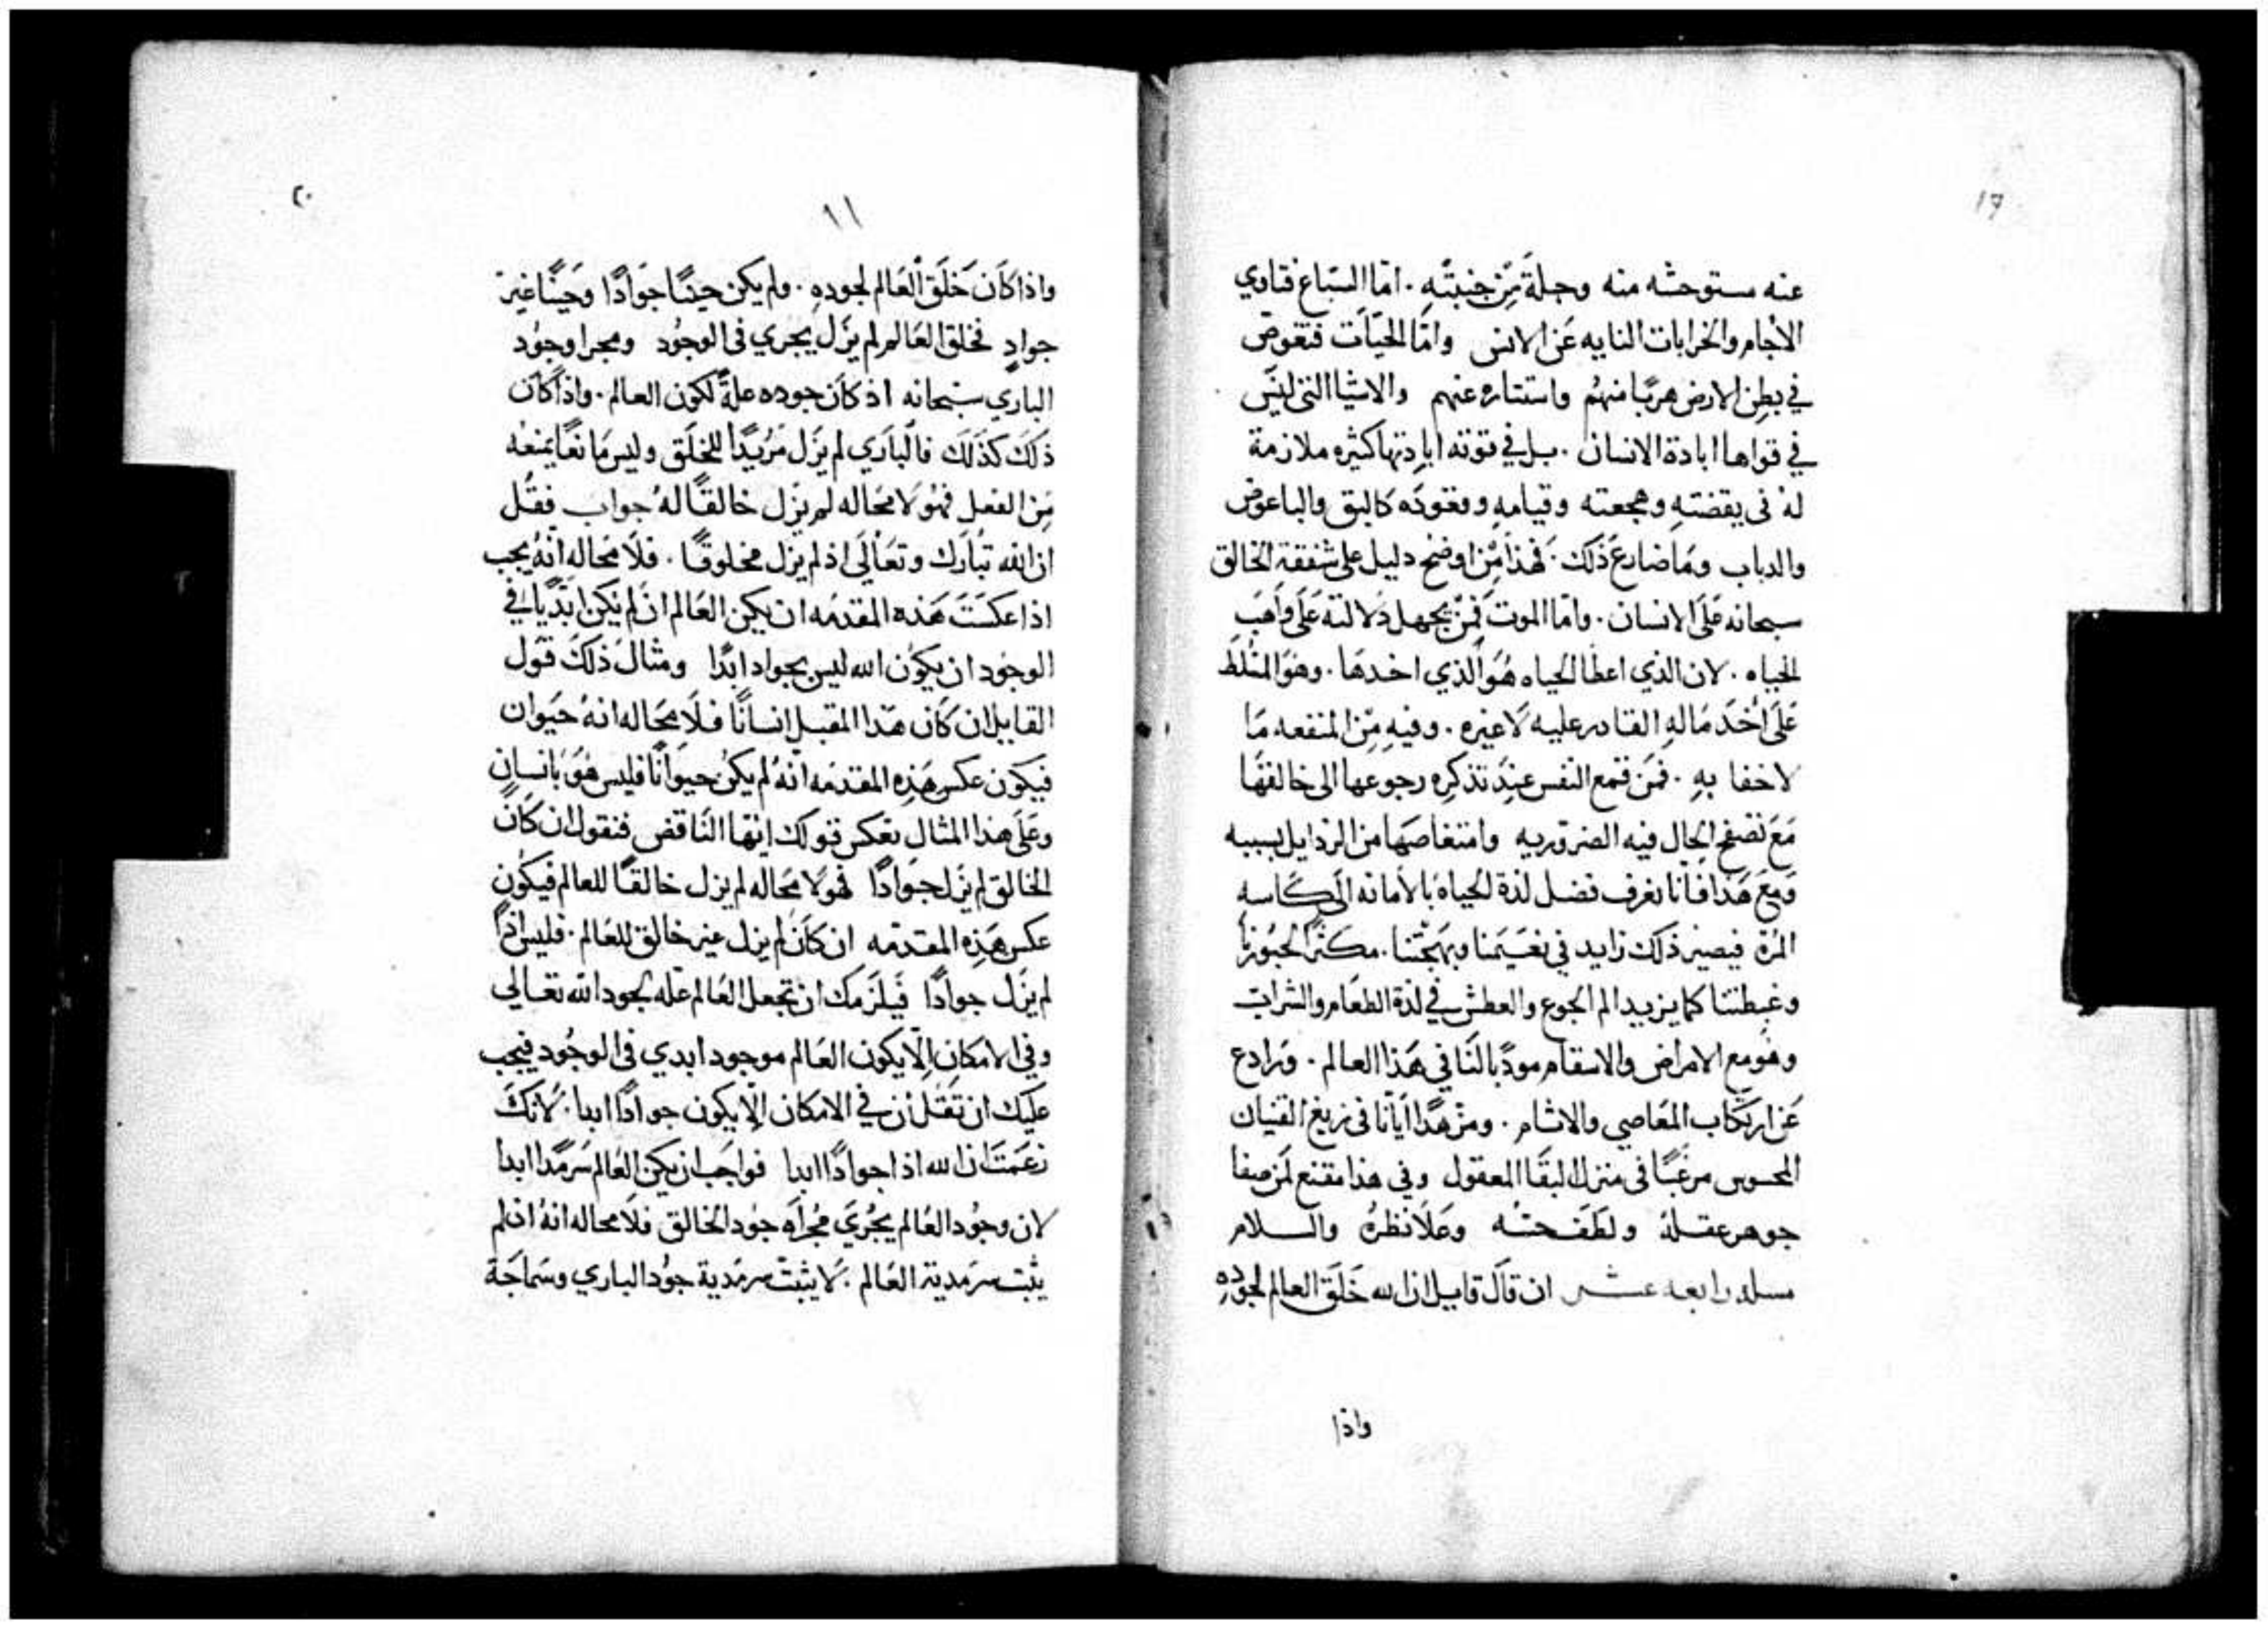 17
عنه مستوحشه منه وجلة من خيبته . اما السباع فتاوي
الاجام والخرابات النايه عن الانس واما الحيات فتغوص
في بطن الارض هربا منهم واستتاره عنهم والاشيا التي ليس
في قواها ابادة الانسان . بل في قوته ابادتها كثيره ملازمة
له في يقضته وهجعته وقيامه وقعوده كالبق والباعوض
والدباب وما ضارع ذلك . فهذا من اوضح دليل على شفقة الخالق
سبحانه على الانسان . واما الموت فمن يجهل دلالته على واهب
الحياه . لان الذي اعطا الحياه هو الذي اخدها . وهو المسلط
على اخد ماله القادر عليه لا غيره . وفيه من المنفعه ما
لا خفا به . فمن قمع النفس عند تذكره رجوعها الى خالقها
مع تصفح الحال فيه الضروريه وامتغاصها من الردايل بسببه
ومع هذا فانا نعرف فضل لذة الحياه بالاماته الى كاسه
المرة فيصير ذلك زايد في نعيمنا وبهجتنا . مكثرا لحبورنا
وغبطتنا كما يزيد الم الجوع والعطش في لذة الطعام والشراب
وهو مع الامراض والاسقام مودبا لنا في هذا العالم . ورادع
عن ارتكاب المعاصي والاثام . ومزهدا ايانا في زيغ القنيان
المحسوس مرغبا في منزل البقا المعقول وفي هذا مقنع لمن صفا
جوهر عقله ولطف حسه وعلا نظره والسلام
مسله رابعه عشر ان قال قايل ان الله خلق العالم لجوده
واذا
٢٠
١١
واذا كان خلق العالم لجوده . ولم يكن حينا جوادا وحينا غير
جواد فخلق العالم لم يزل يجري في الوجود ومجرا وجود
الباري سبحانه اذ كان جوده علة لكون العالم . واذا كان
ذلك كذلك فالباري لم يزل مريدا للخلق وليس مانعا يمنعه
من الفعل فهو لا محاله لم يزل خالقا له جواب فقل
ان الله تبارك وتعالى اذ لم يزل مخلوقا . فلا محاله انه يجب
اذا عكست هذه المقدمه ان يكن العالم ان لم يكن ابديا في
الوجود ان يكون الله ليس بجواد ابدا ومثال ذلك قول
القايل ان كان هذا المقبل انسانا فلا محاله انه حيوان
فيكون عكس هذه المقدمه انه لم يكن حيوانا فليس هو بانسان
وعلى هذا المثال نعكس قولك ايها الناقض فنقول ان كان
الخالق لم يزل جوادا فهو لا محاله لم يزل خالقا للعالم فيكون
عكس هذه المقدمه ان كان لم يزل غير خالق للعالم . فليس اذا
لم يزل جوادا فيلزمك ان تجعل العالم عله لجود الله تعالى
وفي الامكان الا يكون العالم موجود ابدي في الوجود فيجب
عليك ان تقل ان في الامكان الا يكون جوادا ابدا . لانك
زعمت ان الله اذا جوادا ابدا فواجب ان يكن العالم سرمدا ابدا
لان وجود العالم يجري مجراه جود الخالق فلا محاله انه اذ لم
يثبت سرمدية العالم . لا يثبت سرمدية جود الباري وسماجة